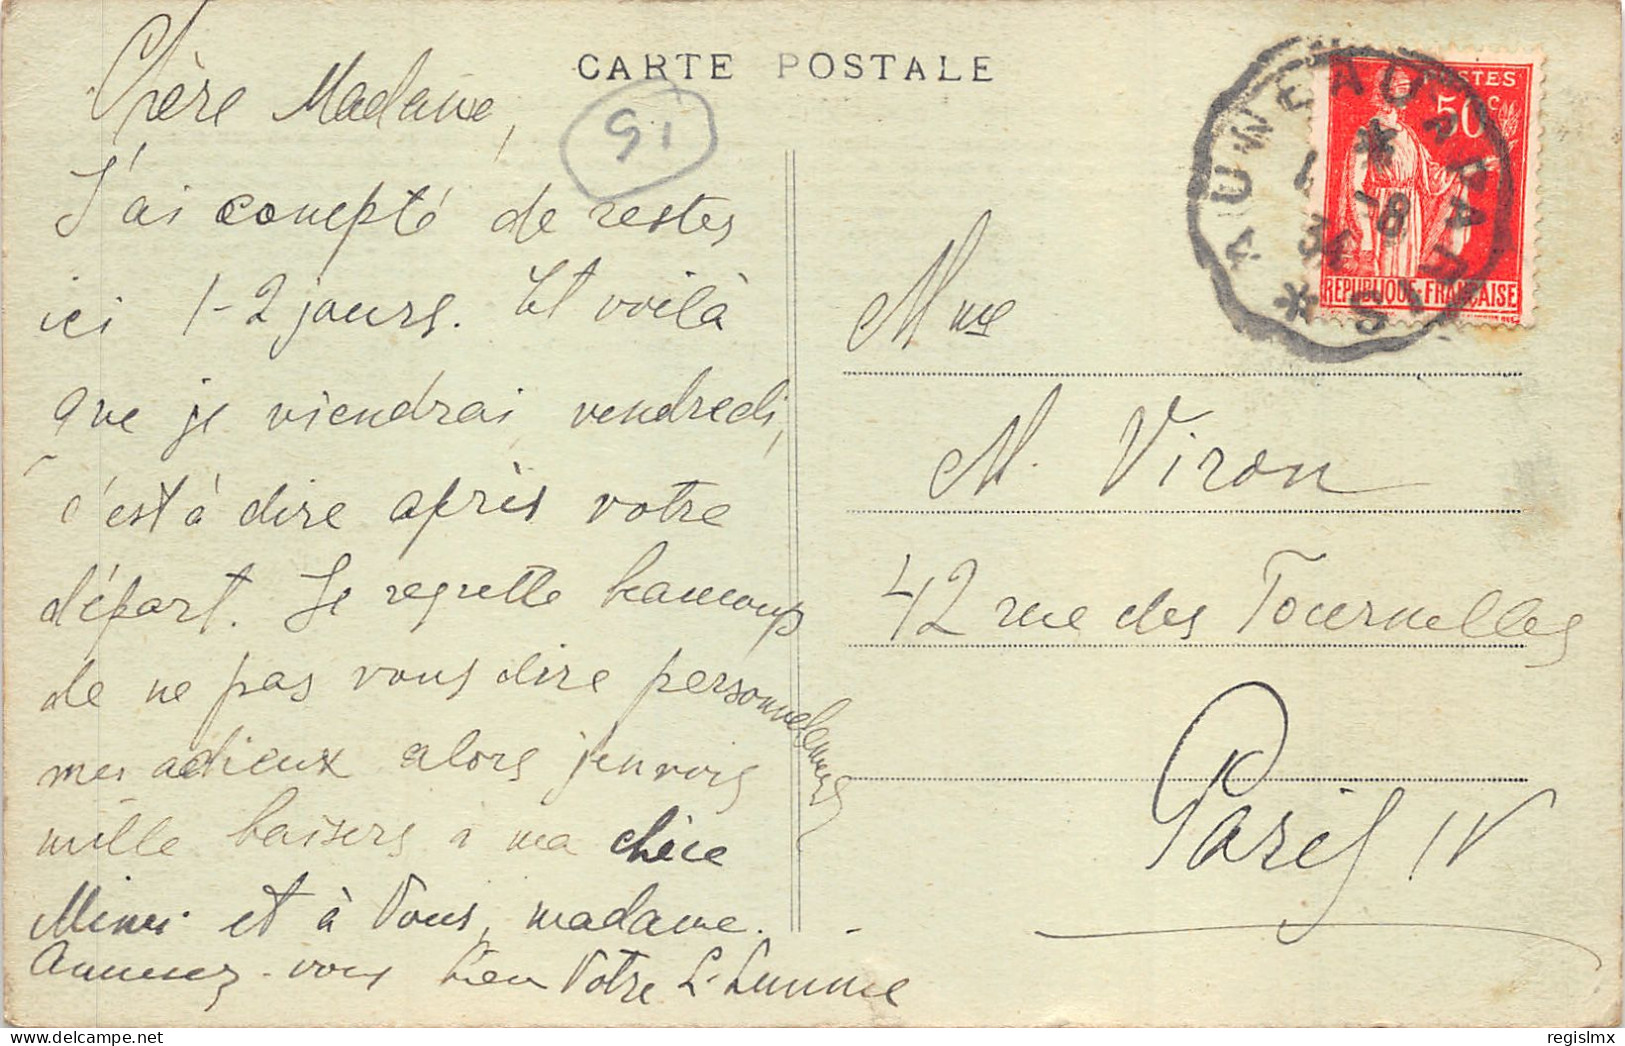 CARTE POSTALE
51
Chère Madame,
J'ai compté de restes
ici 1-2 jours. Et voilà
que je viendrai vendredi,
c'est à dire après votre
départ. Je regrette beaucoup
de ne pas vous dire personnellement
mes adieux alors j'envois
mille baisers à ma chère
Mimi et à Vous, madame.
Amusez-vous bien Votre
Mme
M. Viron
42 rue des Tournelles
Paris IV
POSTES
50c
REPUBLIQUE·FRANÇAISE
AUNEAU A PARIS
1 -8
34
regislmx